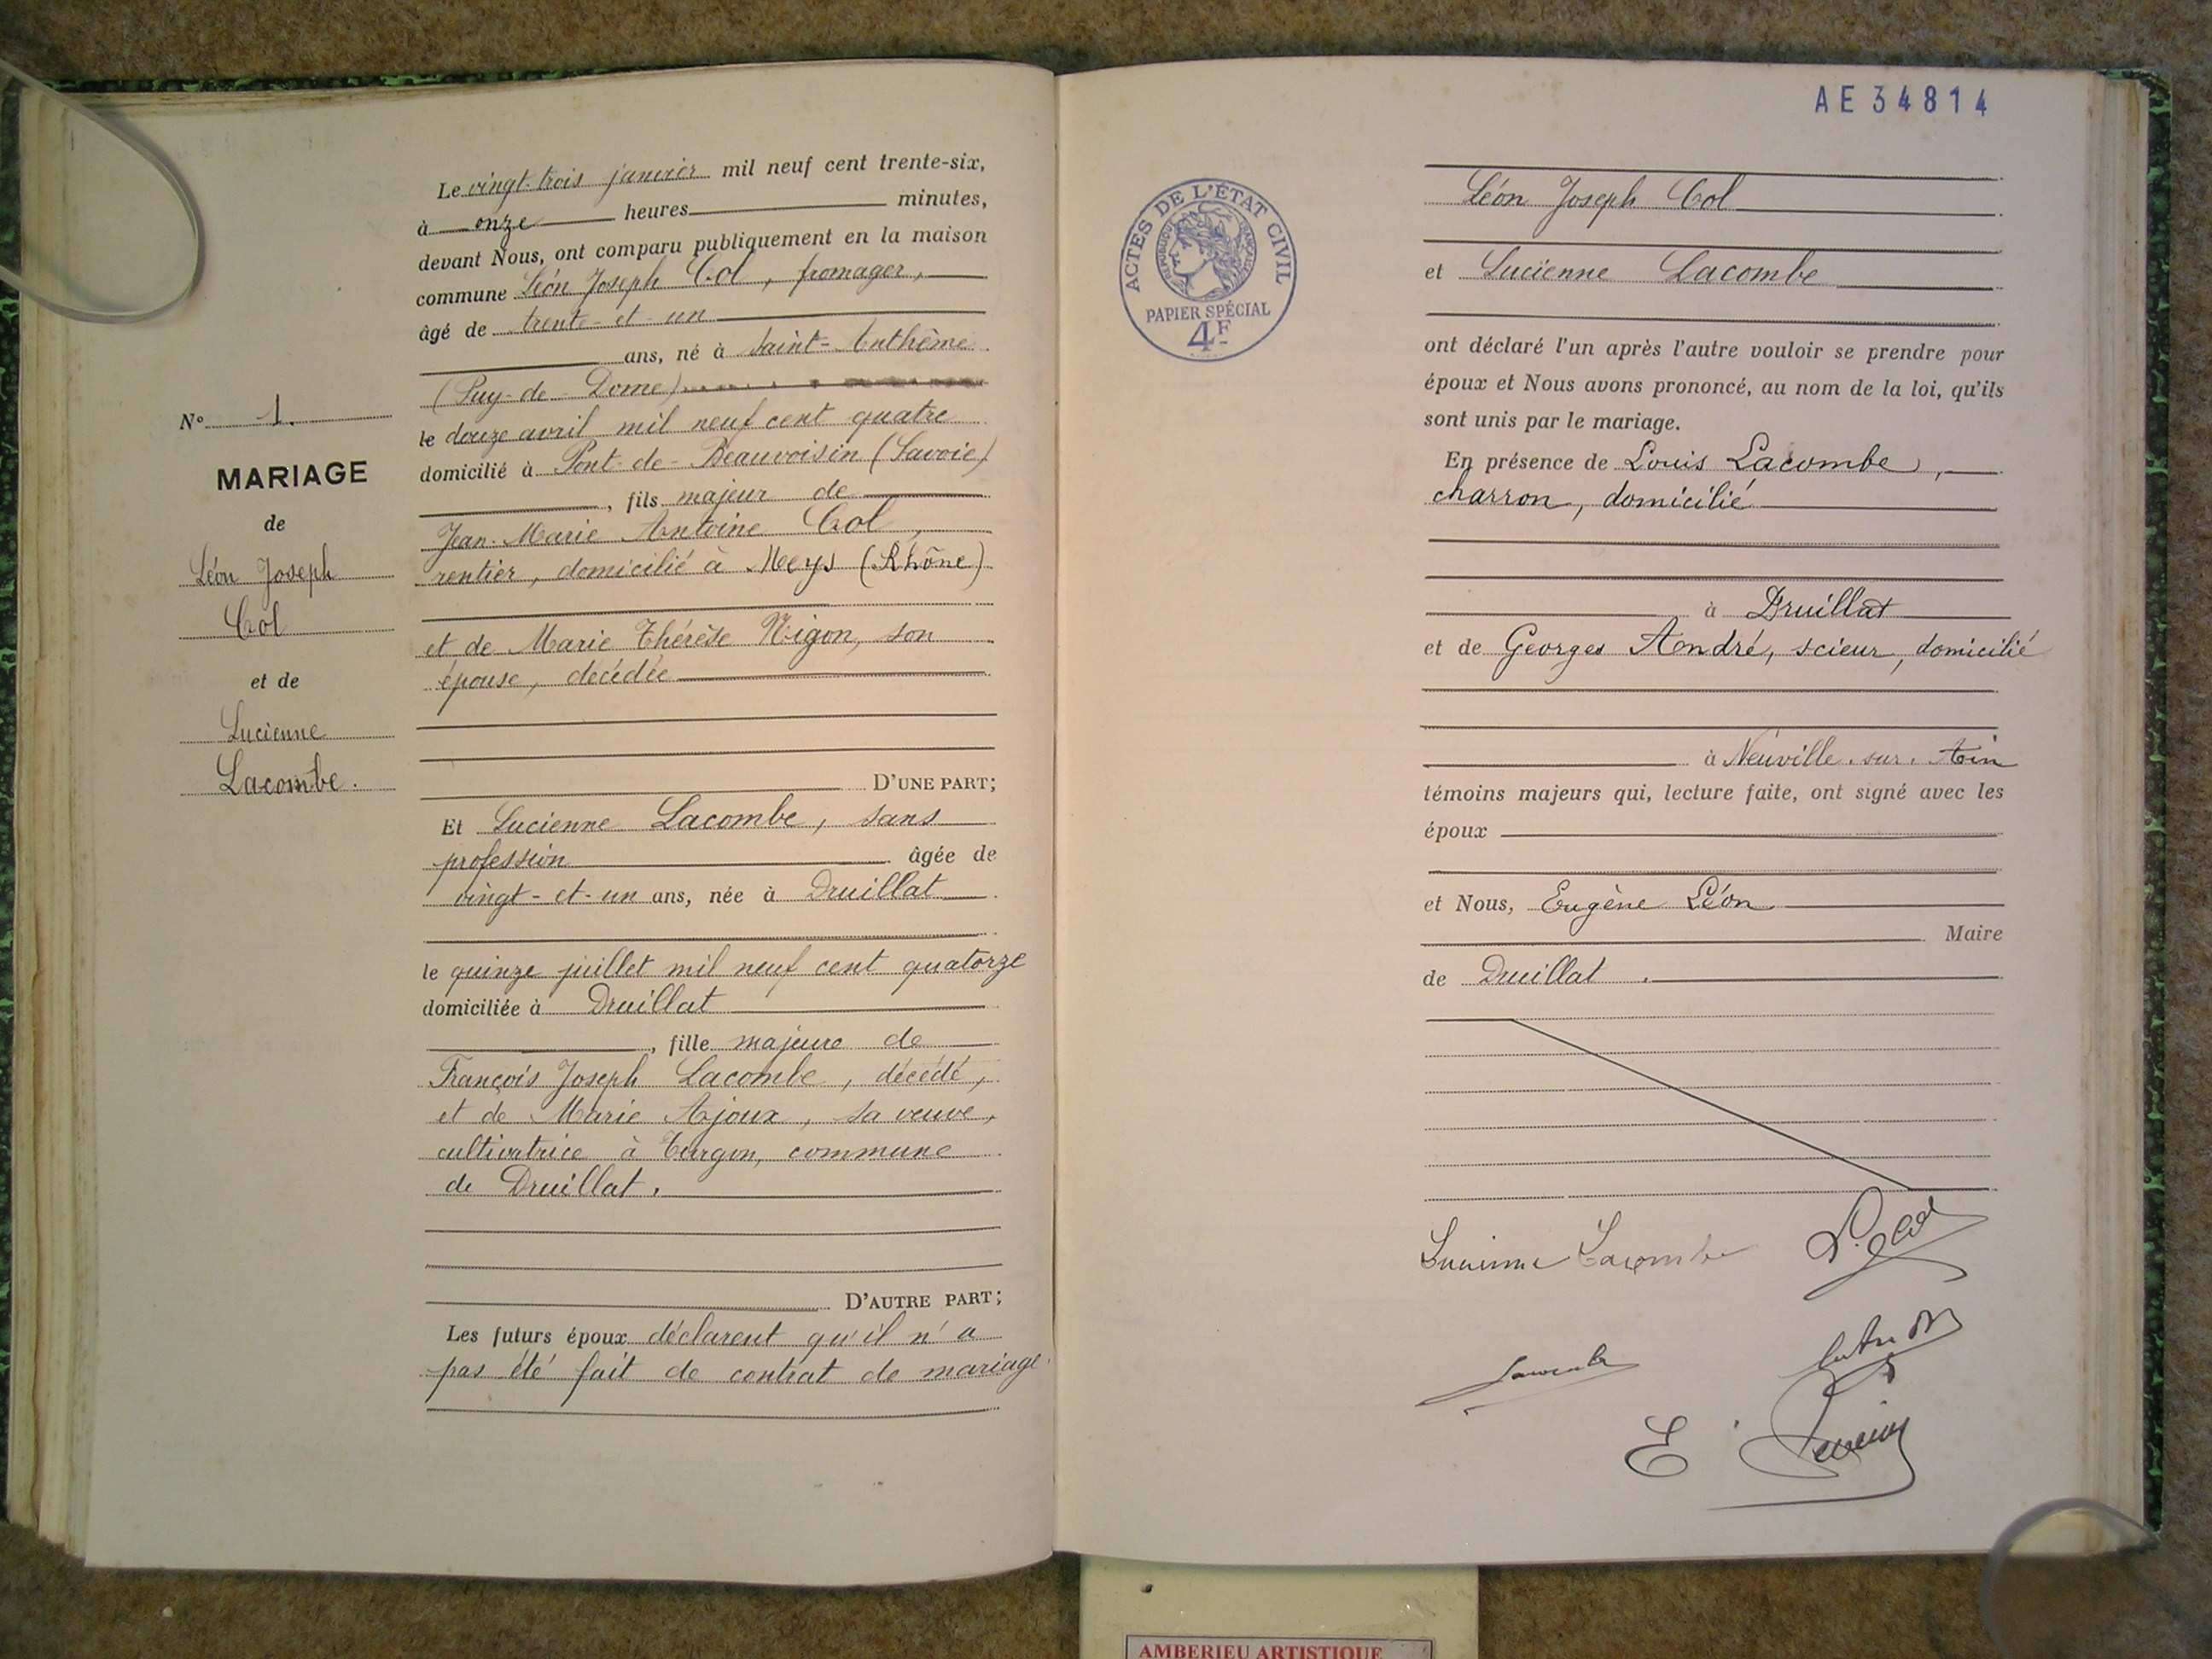 N° 1.
MARIAGE
de
Léon Joseph
Col
et de
Lucienne
Lacombe.
Le vingt-trois janvier mil neuf cent trente-six,
à onze heures minutes,
devant Nous, ont comparu publiquement en la maison
commune Léon Joseph Col, fromager,
âgé de trente-et-un
ans, né à Saint-Anthème
(Puy-de-Dome)
le douze avril mil neuf cent quatre
domicilié à Pont-de-Beauvoisin (Savoie)
, fils majeur de
Jean-Marie Antoine Col,
rentier, domicilié à Meys (Rhône)
et de Marie Thérèse Rigon, son
épouse, décédée
D'UNE PART;
Et Lucienne Lacombe, sans
profession âgée de
vingt-et-un ans, née à Druillat
le quinze juillet mil neuf cent quatorze
domiciliée à Druillat
, fille majeure de
François Joseph Lacombe, décédé,
et de Marie Ajoux, sa veuve,
cultivatrice à Turgon, commune
de Druillat.
D'AUTRE PART;
Les futurs époux déclarent qu'il n'a
pas été fait de contrat de mariage.
AE34814
ACTES DE L'ÉTAT CIVIL
RÉPUBLIQUE FRANÇAISE
PAPIER SPÉCIAL
4F
Léon Joseph Col
et Lucienne Lacombe
ont déclaré l'un après l'autre vouloir se prendre pour
époux et Nous avons prononcé, au nom de la loi, qu'ils
sont unis par le mariage.
En présence de Louis Lacombe,
charron, domicilié
à Druillat
et de Georges André, scieur, domicilié
à Neuville-sur-Ain
témoins majeurs qui, lecture faite, ont signé avec les
époux
et Nous, Eugène Léon
Maire
de Druillat.
Lucienne Lacombe L. Col
Lacombe
E
AMBERIEU ARTISTIQUE